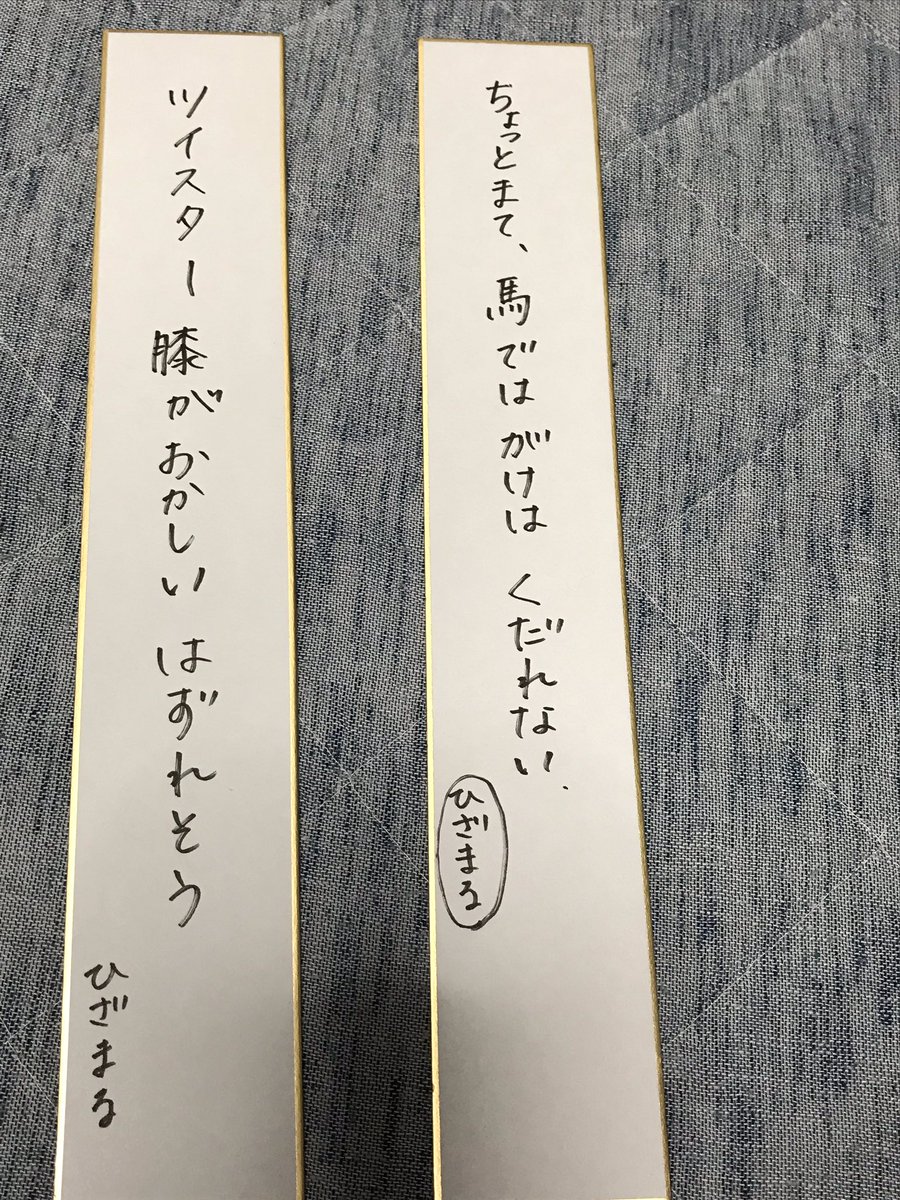 ちょっとまて、馬ではがけはくだれない.
ひざまる
ツイスター 膝がおかしい はずれそう
ひざまる